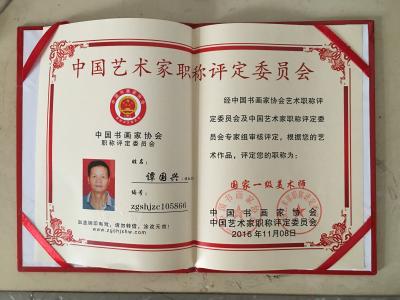 中国艺术家职称评定委员会
中国书画家协会
职称评定委员会
姓名:
谭国兴
编号:
zgshjzc105866
www.zgshjxhw.com
经中国书画家协会艺术职称评
定委员会及中国艺术家职称评定委员
会专家组审核评定，根据您的艺
术作品，评定您的职称为：
国家一级美术师
中国书画家协会
中国艺术家职称评定委员会
2016年11月08日